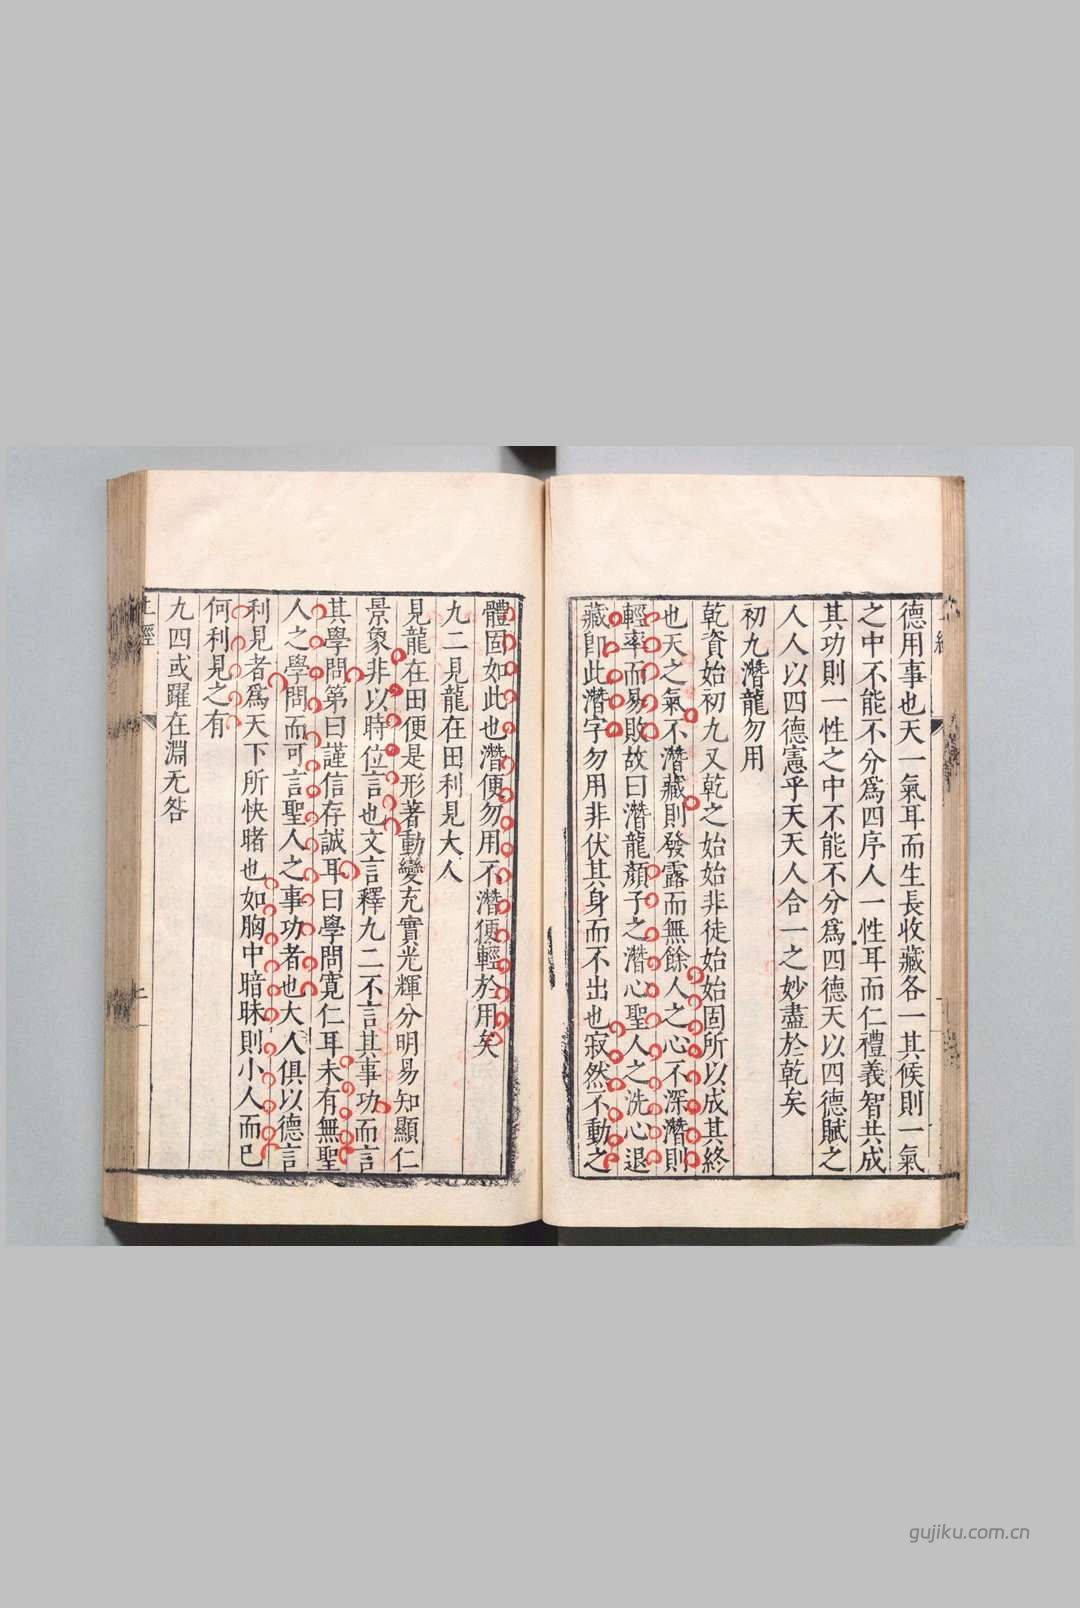 德用事也天一氣耳而生長收藏各一其候則一氣
之中不能不分爲四序人一性耳而仁禮義智共成
其功則一性之中不能不分爲四德天以四德賦之
人人以四德憲乎天天人合一之妙盡於乾矣
初九潛龍勿用
乾資始初九又乾之始始非徒始始固所以成其終
也天之氣不潛藏則發露而無餘人之心不深潛則
輕率而易敗故曰潛龍顏子之潛心聖人之洗心退
藏卽此潛字勿用非伏其身而不出也寂然不動之
體固如此也潛便勿用不潛便輕於用矣
九二見龍在田利見大人
見龍在田便是形著動變充實光輝分明易知顯仁
景象非以時位言也文言釋九二不言其事功而言
其學問第曰謹信存誠耳曰學問寬仁耳未有無聖
人之學問而可言聖人之事功者也大人俱以德言
利見者爲天下所快睹也如胸中暗昧則小人而已
何利見之有
九四或躍在淵无咎
上經
gujiku.com.cn